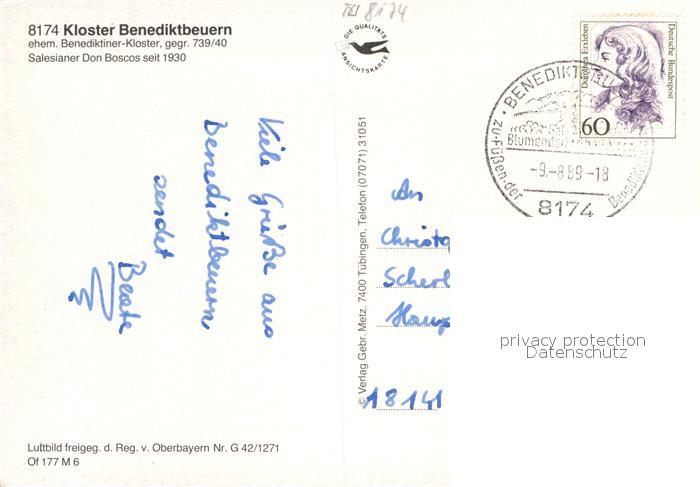 8174 Kloster Benediktbeuern
ehem. Benediktiner-Kloster, gegr. 739/40
Salesianer Don Boscos seit 1930
8174
DIE QUALITÄTS
ANSICHTSKARTE
Dorothea Erxleben
Deutsche Bundespost
60
BENEDIKTBEU
Blumendorf
zu-Füßen-der
-9.-8.89-18
8174
Viele Grüße aus
Benediktbeuern,
sendet
Beate
© Verlag Gebr. Metz, 7400 Tübingen, Telefon (07071) 31051
An
Christo
Scherl
Haup
18141
privacy protection
Datenschutz
Luftbild freigeg. d. Reg. v. Oberbayern Nr. G 42/1271
Of 177 M 6